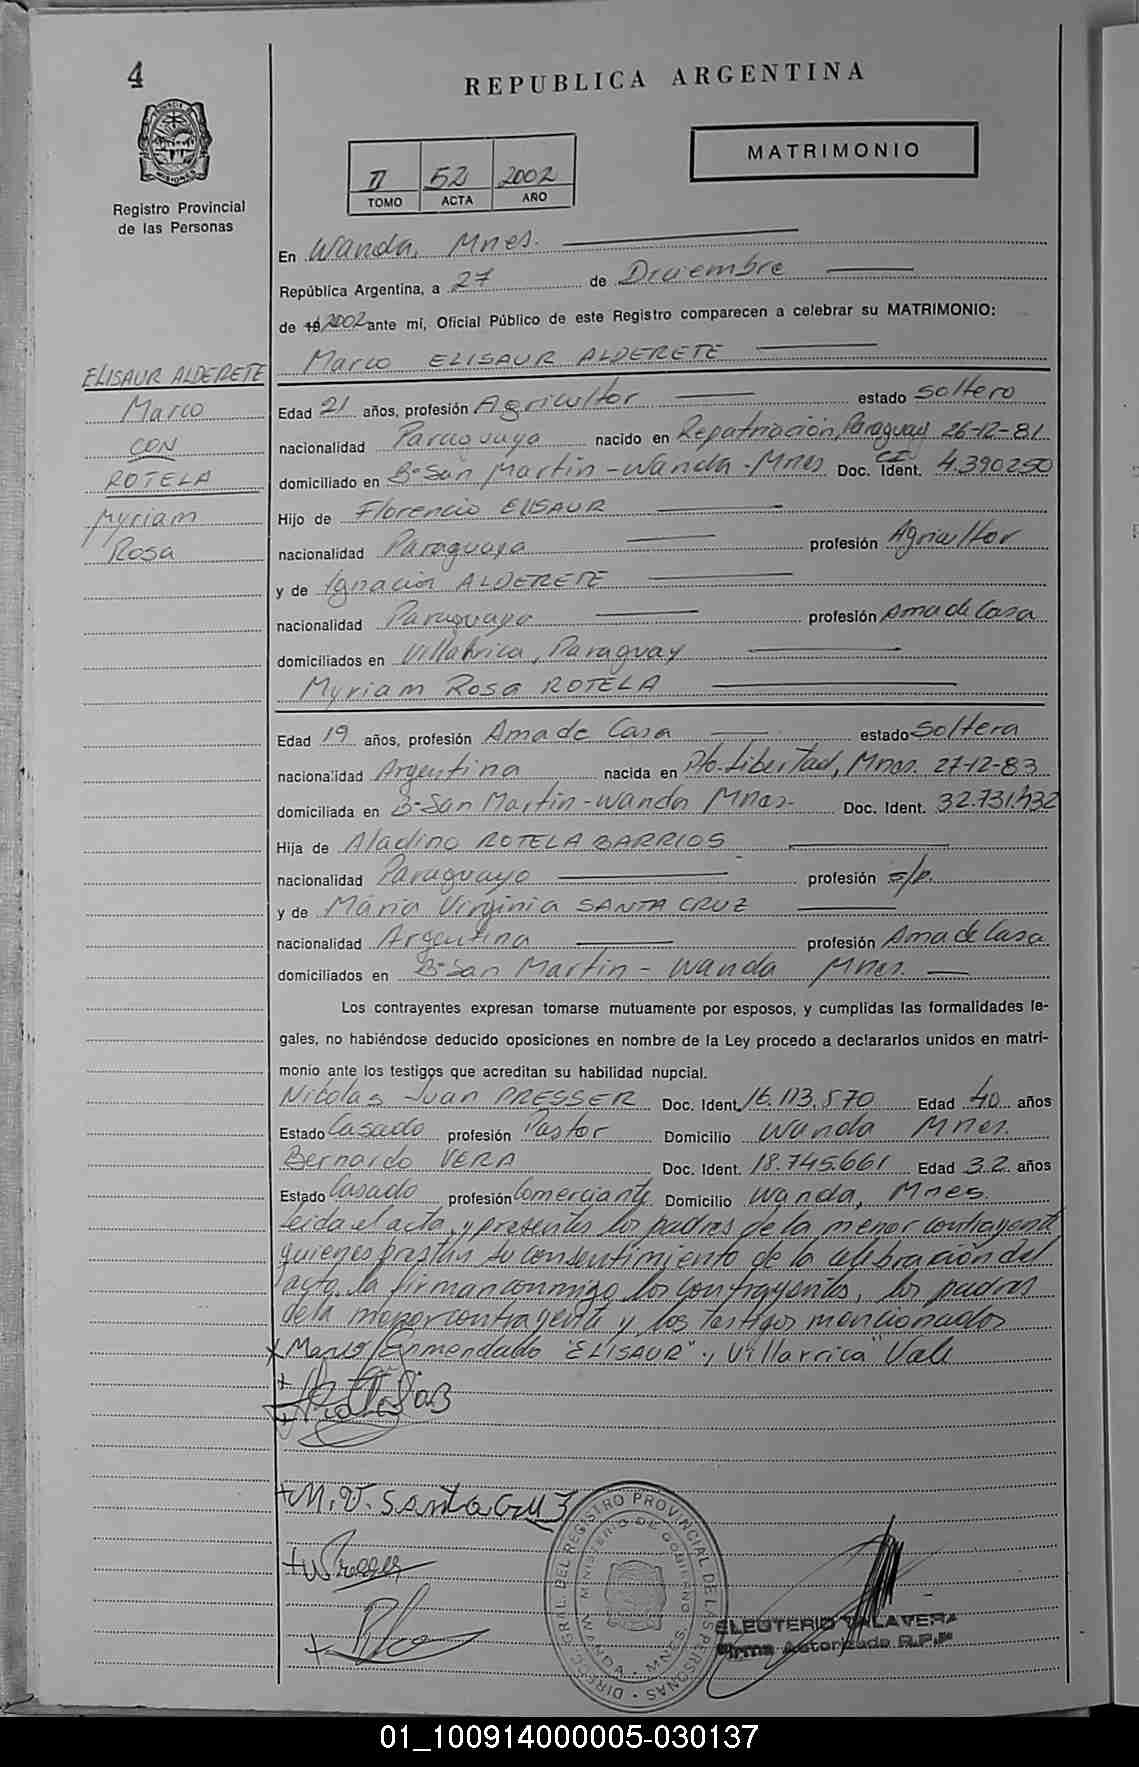 4
REPUBLICA ARGENTINA
MATRIMONIO
II 52 2002
TOMO ACTA AÑO
Registro Provincial
de las Personas
En Wanda, Mnes.
República Argentina, a 27 de Diciembre
de 19 2002 ante mí, Oficial Público de este Registro comparecen a celebrar su MATRIMONIO:
Marco ELISAUR ALDERETE
ELISAUR ALDERETE
Marco
CON
ROTELA
Myriam
Rosa
Edad 21 años, profesión Agricultor estado soltero
nacionalidad Paraguaya nacido en Repatriación, Paraguay 26-12-81
domiciliado en B° San Martin - Wanda - Mnes Doc. Ident. CI 4.390250
Hijo de Florencio ELISAUR
nacionalidad Paraguaya profesión Agricultor
y de Ignacia ALDERETE
nacionalidad Paraguaya profesión Ama de Casa
domiciliados en Villarrica, Paraguay
Myriam Rosa ROTELA
Edad 19 años, profesión Ama de Casa estado soltera
nacionalidad Argentina nacida en Pto. Libertad, Mnes. 27-12-83
domiciliada en B° San Martin - Wanda Mnes- Doc. Ident. 32.731.432
Hija de Aladino ROTELA BARRIOS
nacionalidad Paraguayo profesión s/p.
y de Maria Virginia SANTA CRUZ
nacionalidad Argentina profesión Ama de Casa
domiciliados en B° San Martin - Wanda Mnes.
Los contrayentes expresan tomarse mutuamente por esposos, y cumplidas las formalidades le-
gales, no habiéndose deducido oposiciones en nombre de la Ley procedo a declararlos unidos en matri-
monio ante los testigos que acreditan su habilidad nupcial.
Nicolas Juan PRESSER Doc. Ident. 16.113.570 Edad 40 años
Estado Casado profesión Pastor Domicilio Wanda Mnes.
Bernardo VERA Doc. Ident. 18.745.661 Edad 32 años
Estado Casado profesión Comerciante Domicilio Wanda, Mnes.
leida el acta, y presentes los padres de la menor contrayente
quienes prestan su consentimiento de la celebración del
acto, la firman conmigo los contrayentes, los padres
de la menor contrayente y los testigos mencionados
x Marco Enmendado "ELISAUR" y Villarrica" Vale
+ M. V. Santa Cruz
+ N Presser
DIREC. GRAL. DEL REGISTRO PROVINCIAL DE LAS PERSONAS
MINISTERIO DE GOBIERNO
WANDA - MNES
ELEUTERIO TALAVERA
Firma Autorizada R.P.P
01_100914000005-030137